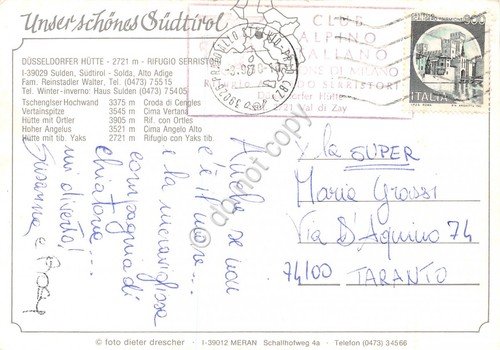 Unser schönes Südtirol
DÜSSELDORFER HÜTTE - 2721 m - RIFUGIO SERRISTORI
I-39029 Sulden, Südtirol - Solda, Alto Adige
Fam. Reinstadler Walter, Tel. (0473) 75515
Tel. Winter-inverno: Haus Sulden (0473) 75405
Tschenglser Hochwand 3375 m Croda di Cengles
Vertainspitze 3545 m Cima Vertana
Hütte mit Ortler 3905 m Rif. con Ortles
Hoher Angelus 3521 m Cima Angelo Alto
Hütte mit tib. Yaks 2721 m Rifugio con Yaks tib.
CLUB
ALPINO
ITALIANO
DI MILANO
SERRISTORI
Hütte
Val de Zay
39029
ITALIA
Anche se non
c'è il mare...
e la meravigliosa
compagnia di
chiatona...
mi diverto!
Susanna e
Alla SUPER
Maria Grossi
Via D'Aquino 74
74100 TARANTO
do not copy
© foto dieter drescher - I-39012 MERAN Schallhofweg 4a - Telefon (0473) 34566